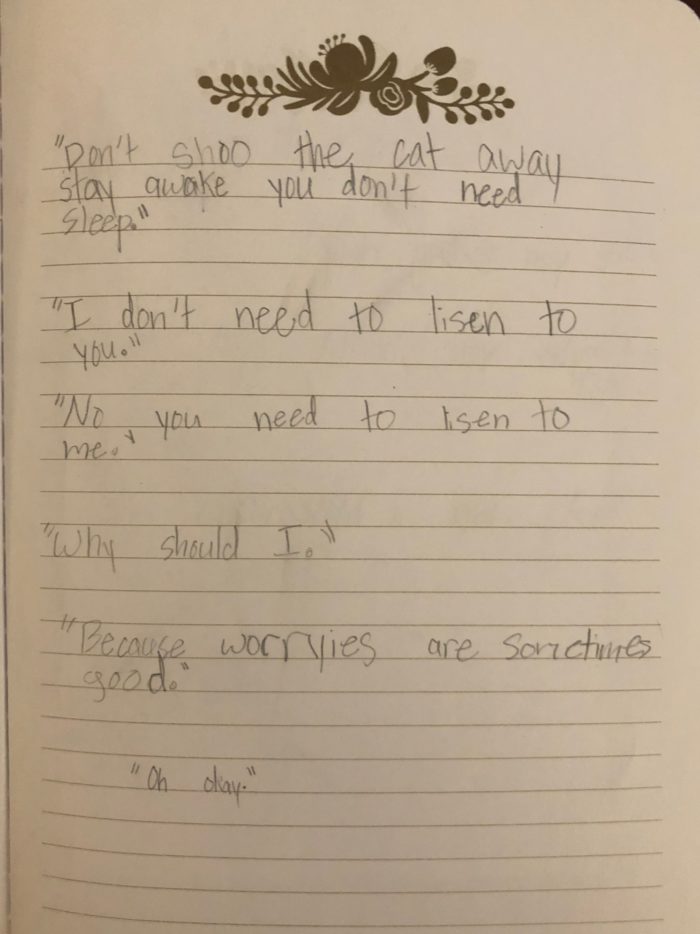 "Don't shoo the cat away
stay awake you don't need
sleep."
"I don't need to lisen to
you."
"No you need to lisen to
me."
"Why should I."
"Because worryies are somctimes
good."
"Oh okay."